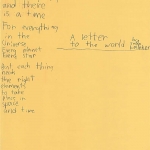 and there
is a time
For everything
in the
Universe
Every planet
Every star
And each thing
needs
the right
elements
to take
place in
space
and time
A letter
to the world
by